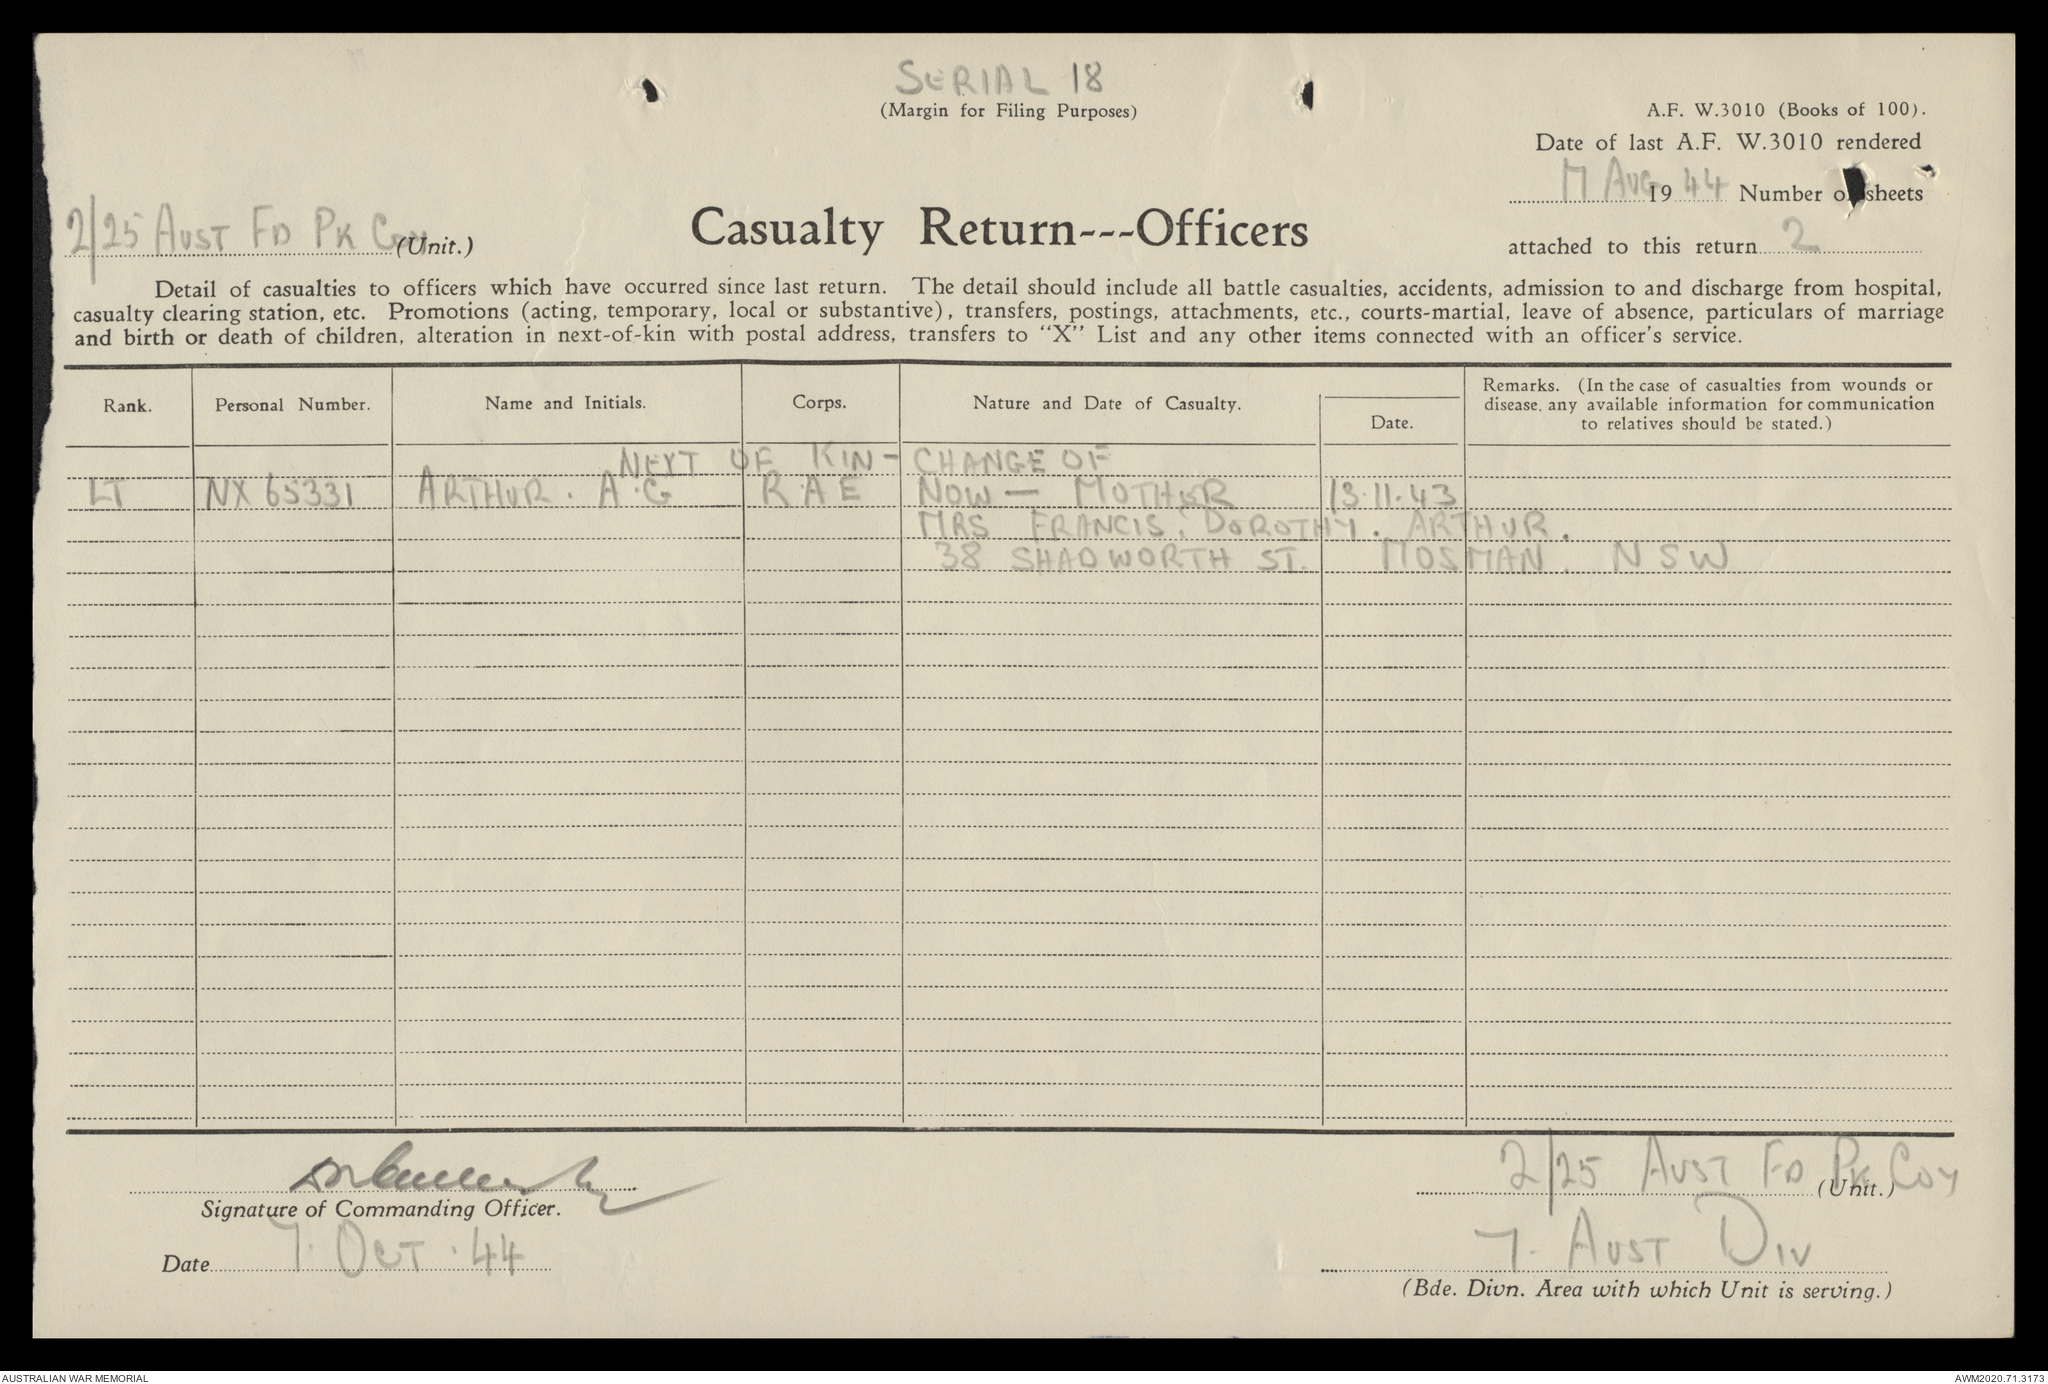 SERIAL 18
(Margin for Filing Purposes)
A.F. W.3010 (Books of 100).
Date of last A.F. W.3010 rendered
AUG 1944 Number of sheets
attached to this return 2
2/25 AUST FD PK COY (Unit.)
Casualty Return---Officers
Detail of casualties to officers which have occurred since last return. The detail should include all battle casualties, accidents, admission to and discharge from hospital,
casualty clearing station, etc. Promotions (acting, temporary, local or substantive), transfers, postings, attachments, etc., courts-martial, leave of absence, particulars of marriage
and birth or death of children, alteration in next-of-kin with postal address, transfers to "X" List and any other items connected with an officer's service.
Rank. Personal Number. Name and Initials. Corps. Nature and Date of Casualty. Date. Remarks. (In the case of casualties from wounds or
disease, any available information for communication
to relatives should be stated.)
NEXT OF KIN - CHANGE OF
LT NX 65331 ARTHUR. A.G RAE NOW — MOTHER 13.11.43
MRS FRANCIS. DOROTHY. ARTHUR.
38 SHADWORTH ST. MOSMAN. NSW
Signature of Commanding Officer.
Date 7. OCT. 44
2/25 AUST FD PK COY
(Unit.)
7. AUST DIV
(Bde. Divn. Area with which Unit is serving.)
AUSTRALIAN WAR MEMORIAL
AWM2020.71.3173